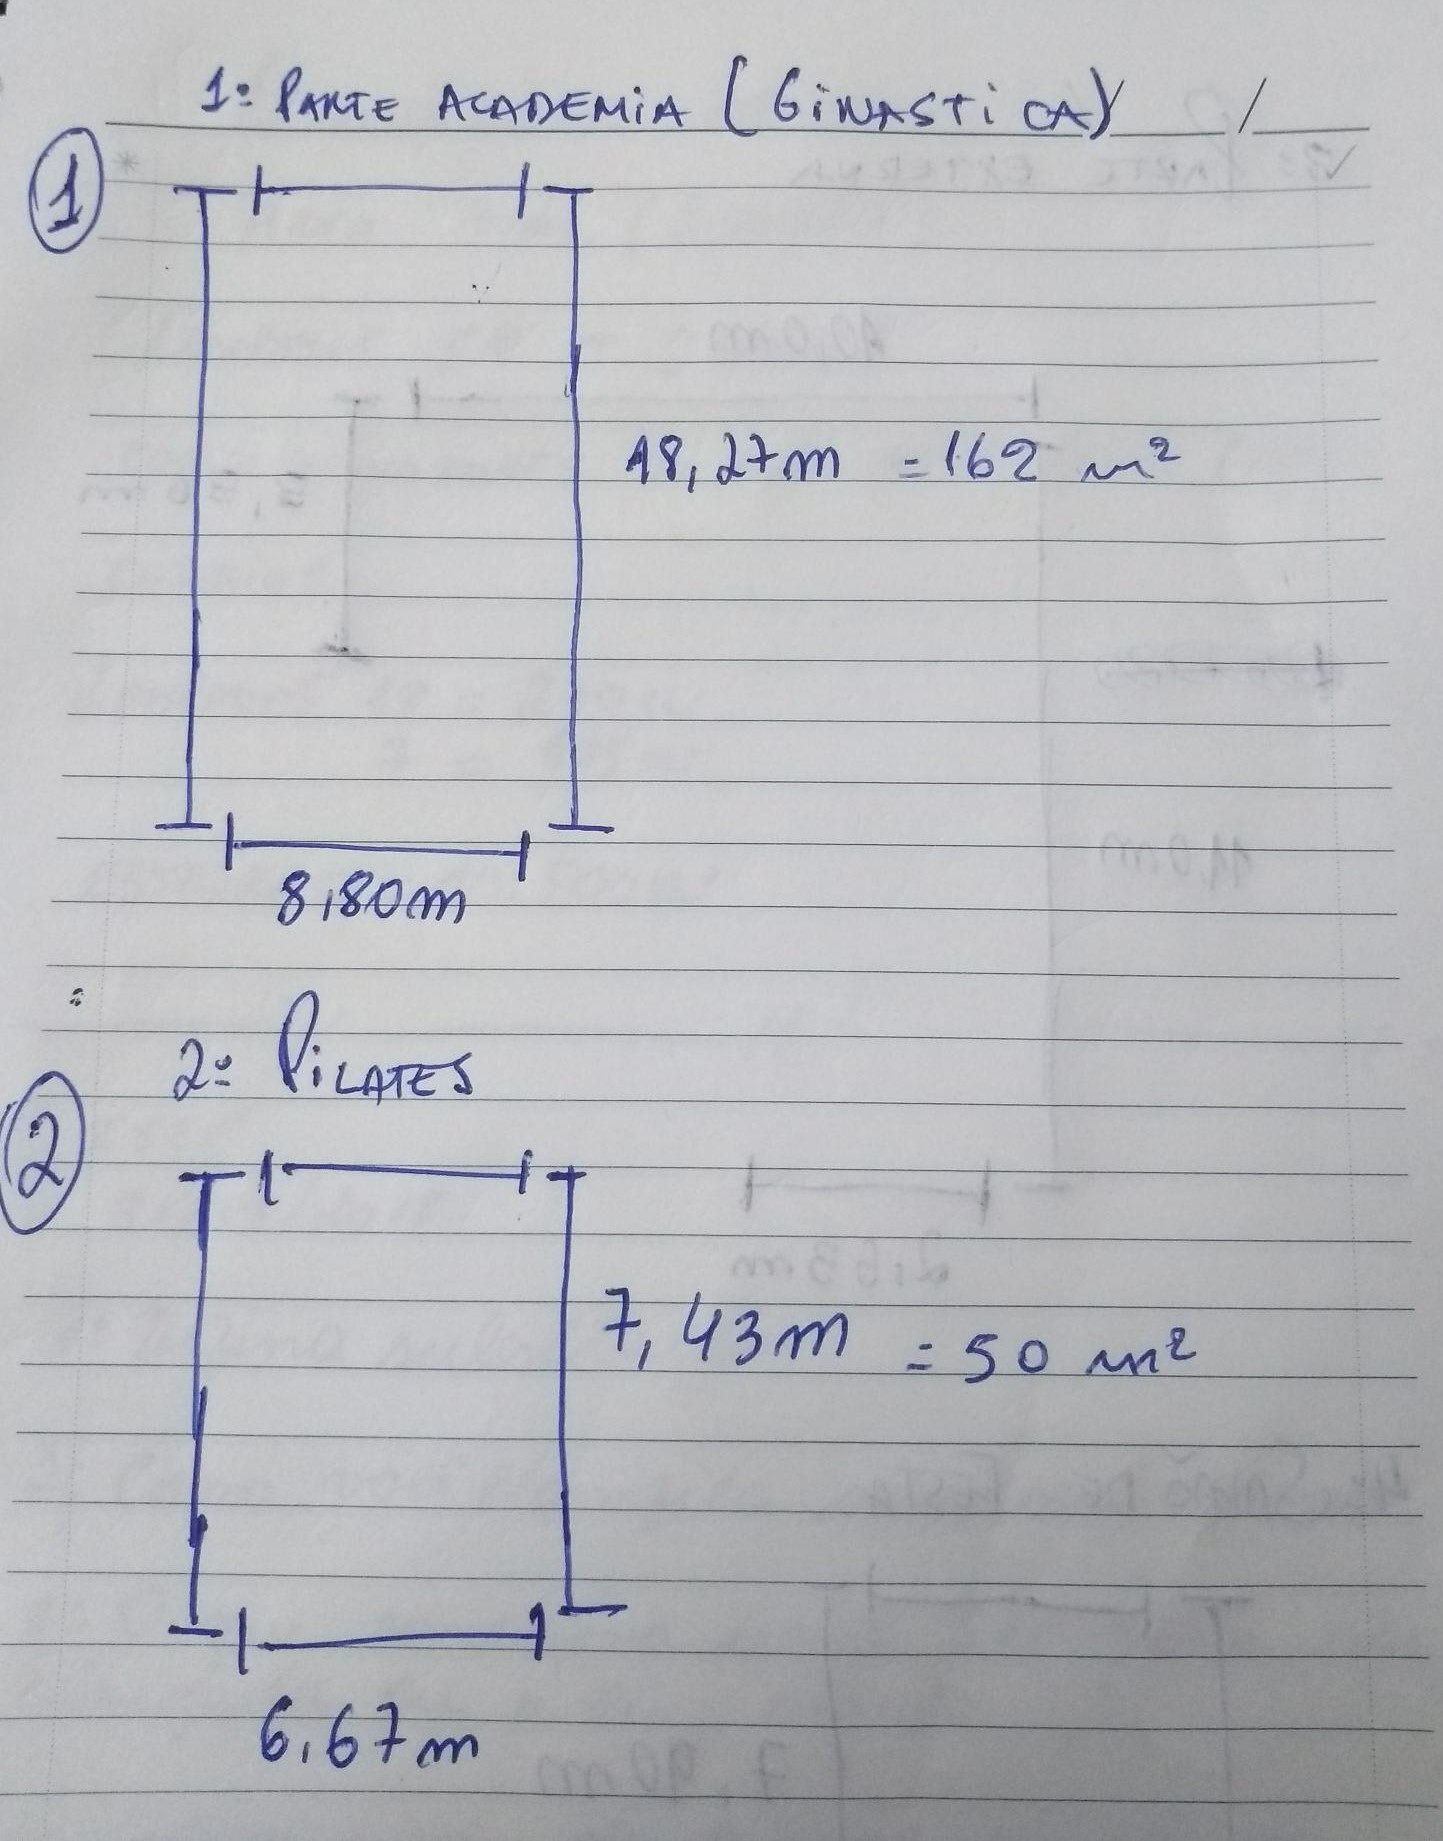 1º PARTE ACADEMIA (GINASTICA) /
1
18,27m = 162 m²
8,80m
2º PILATES
2
7,43m = 50 m²
6,67m